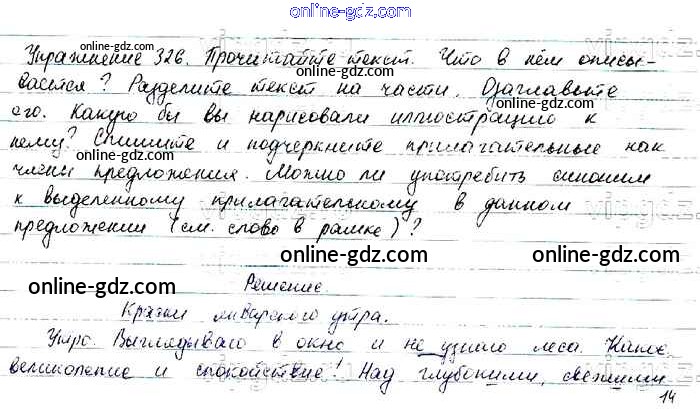 online-gdz.com
Упражнение 326. Прочитайте текст. Что в нём описы-
вается? Разделите текст на части. Озаглавьте
его. Какую бы вы нарисовали иллюстрацию к
нему? Спишите и подчеркните прилагательные как
члены предложения. Можно ли употребить синоним
к выделенному прилагательному в данном
предложении (см. слово в рамке)?
online-gdz.com online-gdz.com
Решение.
Краски январского утра.
Утро. Выглядываю в окно и не узнаю леса. Какое
великолепие и спокойствие! Над глубокими, свежими
14